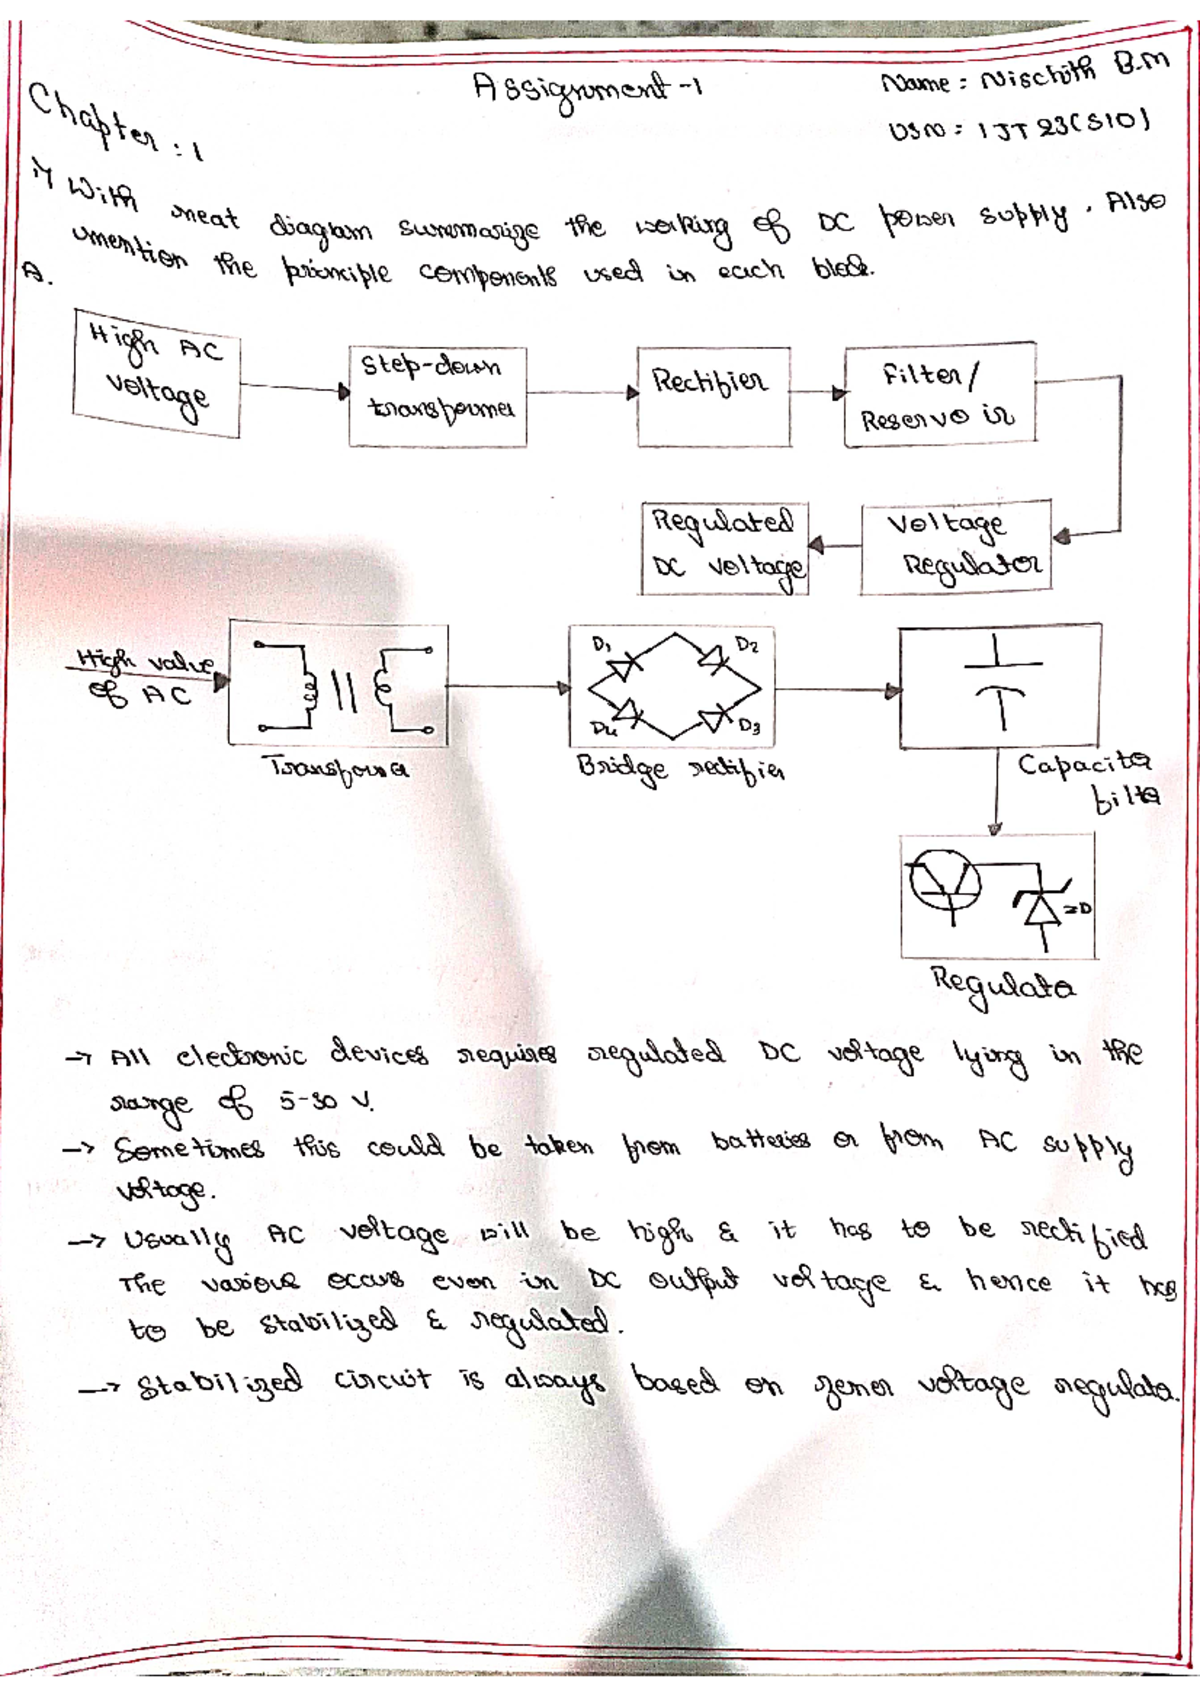 Assignment-1
Name : Nischith B.M
USN : 1JT23(S10)
Chapter : 1
1) With neat diagram summarize the working of DC power supply. Also
mention the principle components used in each block.
A.
High AC
voltage
Step-down
transformer
Rectifier
Filter/
Reservoir
Voltage
Regulator
Regulated
DC voltage
High value
of AC
Transformer
D1
D2
D4
D3
Bridge rectifier
Capacitor
filter
ZD
Regulator
→ All electronic devices requires regulated DC voltage lying in the
range of 5-30 V.
→ Sometimes this could be taken from batteries or from AC supply
voltage.
→ Usually AC voltage will be high & it has to be rectified
The various occurs even in DC output voltage & hence it has
to be stabilized & regulated.
→ Stabilized circuit is always based on zener voltage regulator.